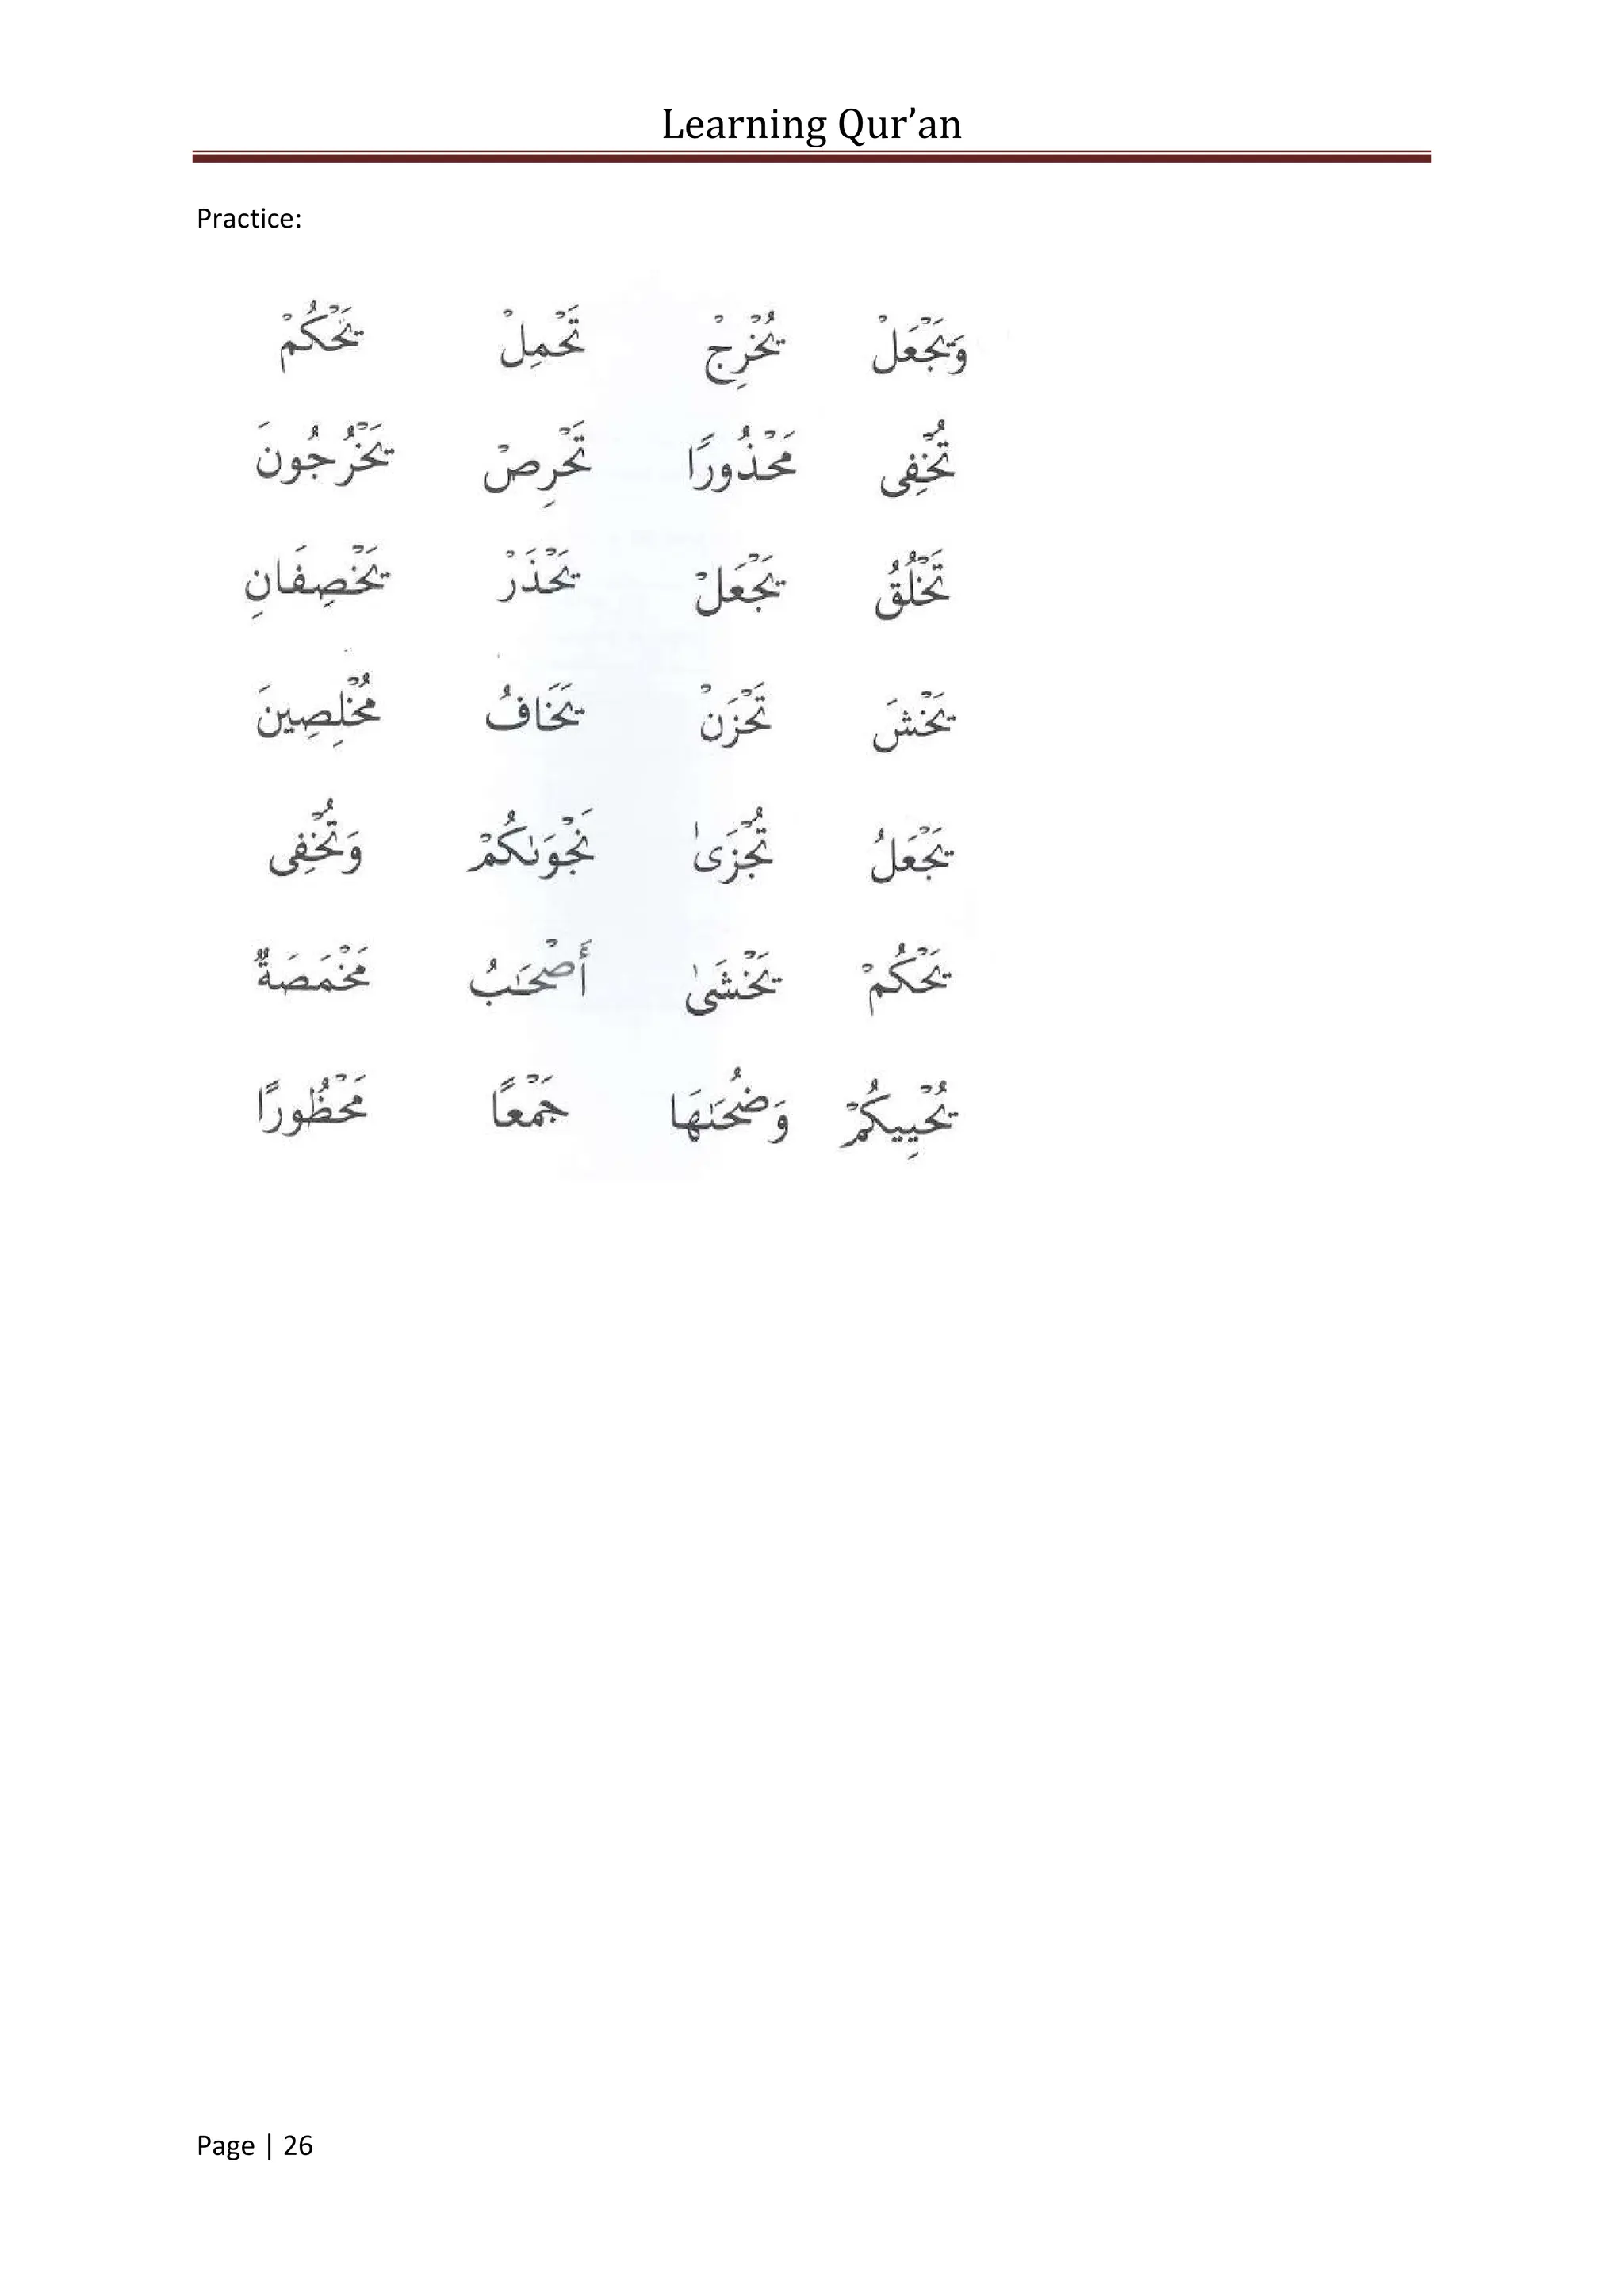 Learning Qur’an
Practice:
وَيَجْعَلْ يُخْرِجْ تَحْمِلْ يَحْكُمْ
تُخْفِى مَحْذُورًا تَحْرِصْ يَخْرُجُونَ
تَخْلُقُ يَجْعَلْ يَحْذَرْ يَخْصِفَانِ
يَخْشَ تَحْزَنْ يَخَافُ مُخْلِصِينَ
يَجْعَلُ تُجْزَىٰ نَجْوَىٰكُمْ وَتُخْفِى
يَحْكُمْ يَخْشَىٰ أَصْحَٰبُ مَخْمَصَةٌ
يُحْيِيكُمْ وَضُحَىٰهَا جَمْعًا مَحْظُورًا
Page | 26